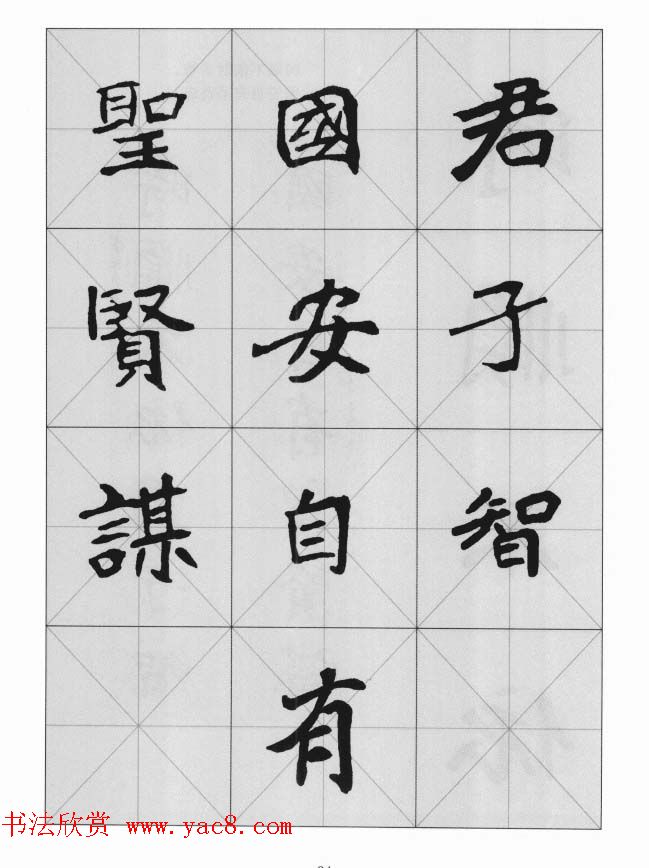 君子智
國安自有
聖賢謀
书法欣赏 www.yac8.com